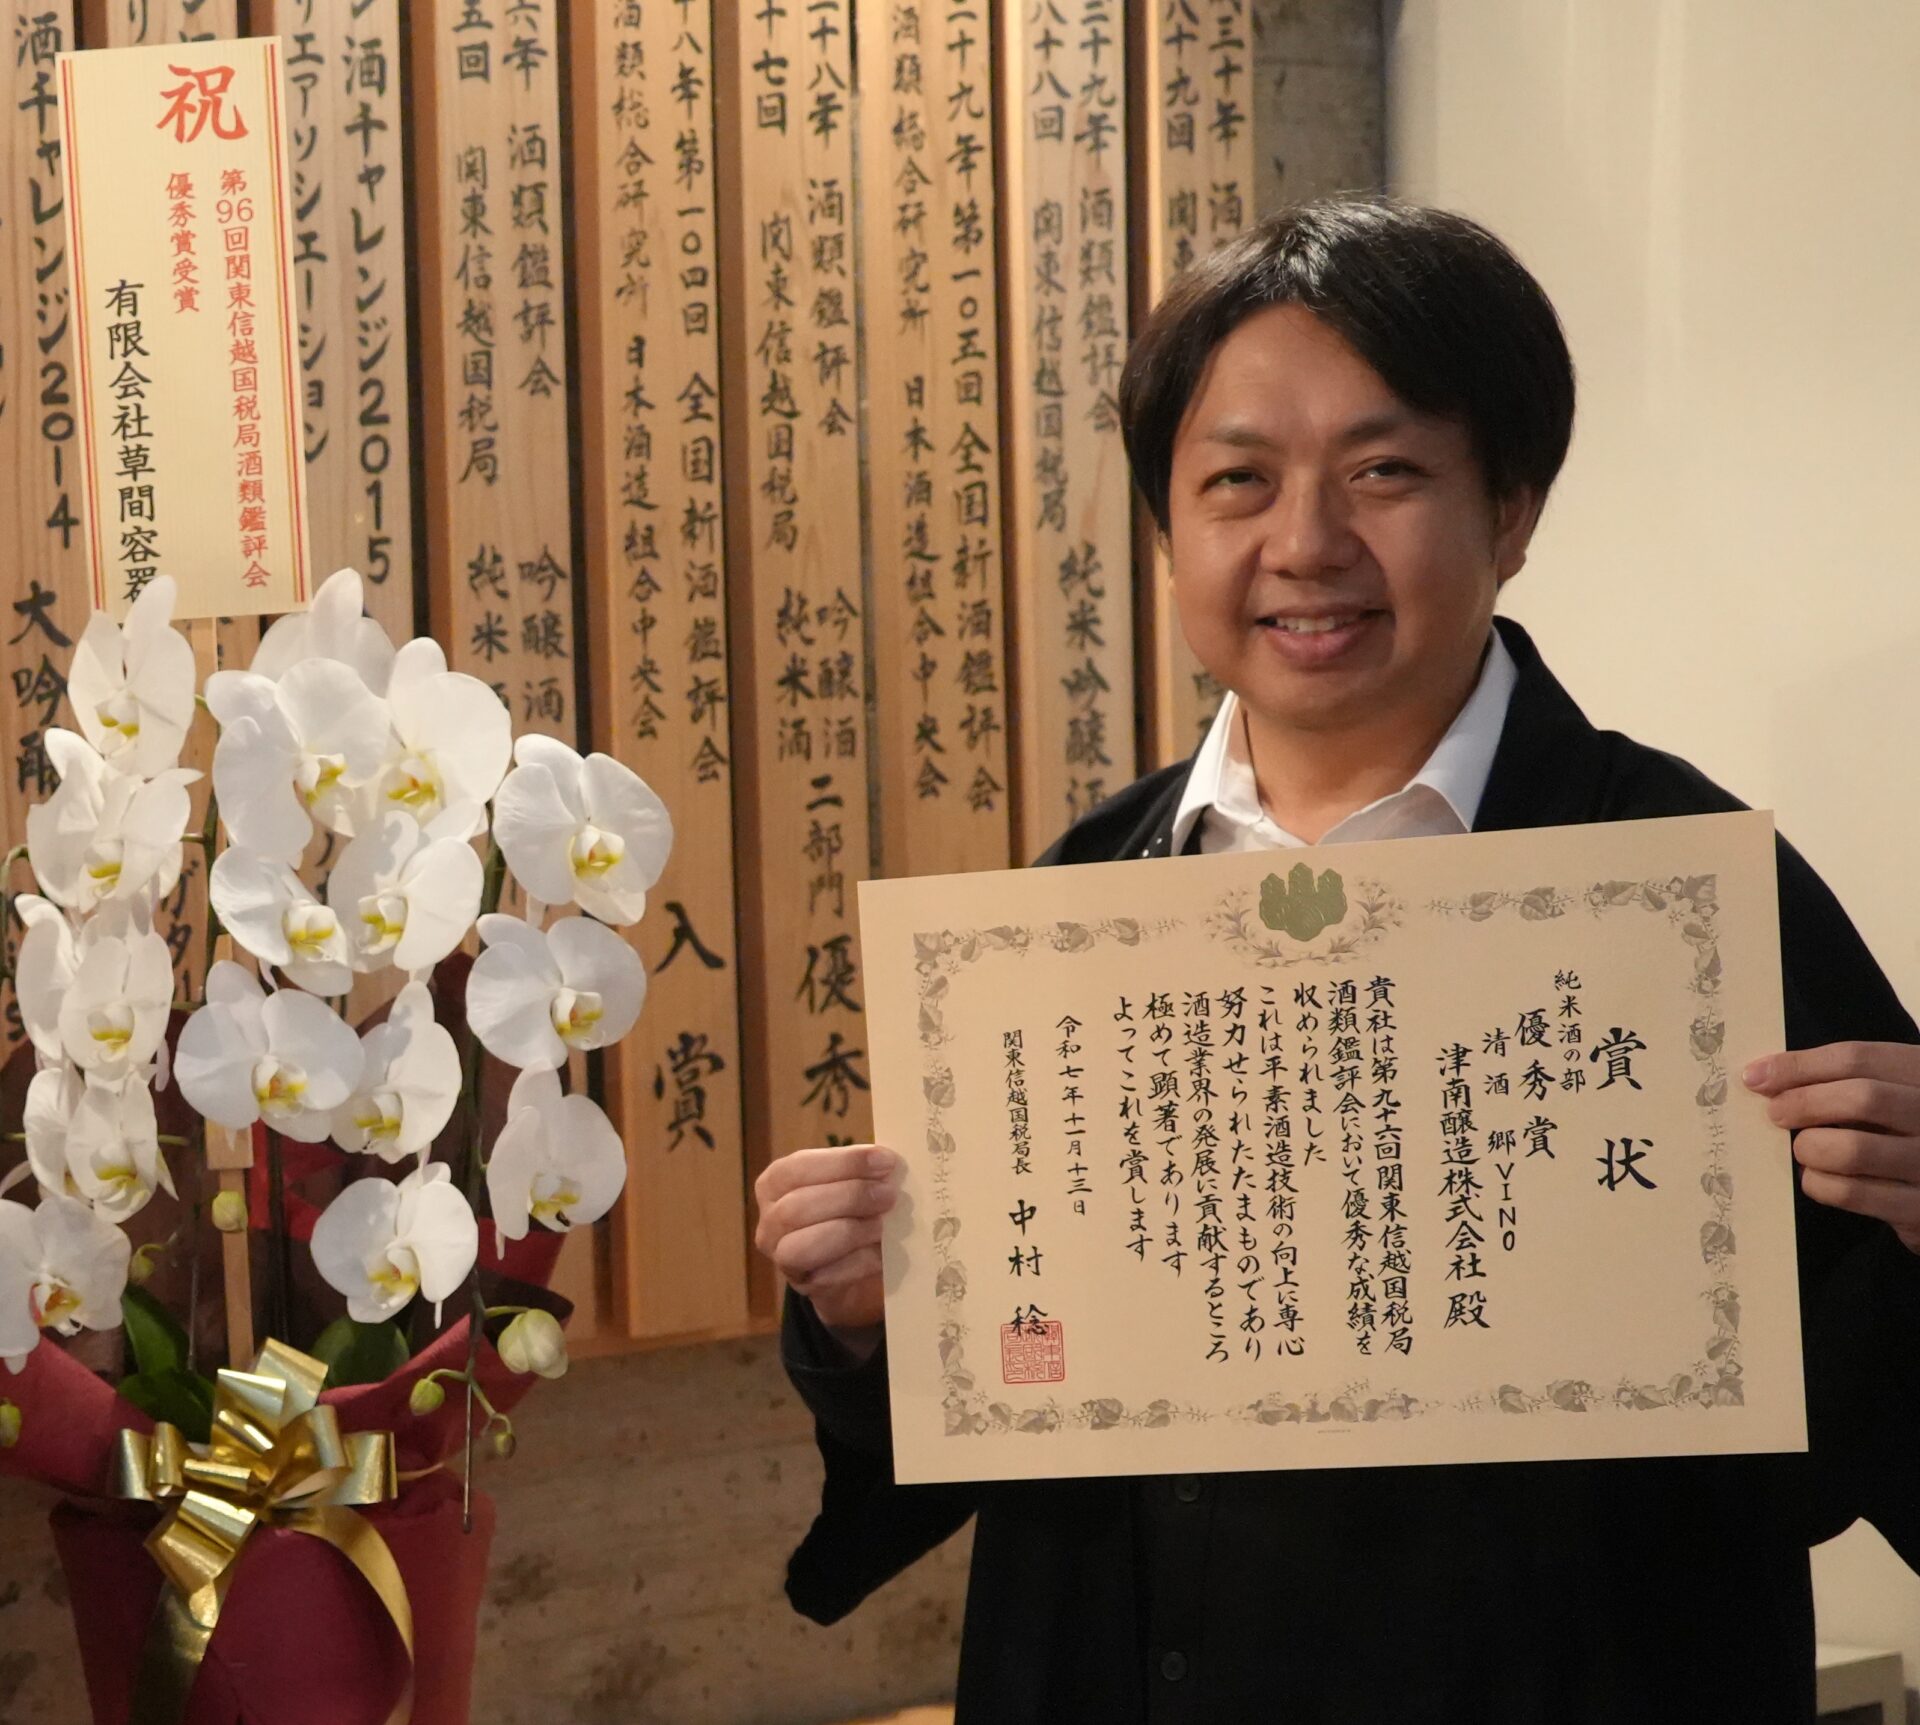 祝
第96回関東信越国税局酒類鑑評会
優秀賞受賞
有限会社草間容器
賞状
純米酒の部
優秀賞
清酒 郷VINO
津南醸造株式会社殿
貴社は第九十六回関東信越国税局
酒類鑑評会において優秀な成績を
収められました
これは平素酒造技術の向上に専心
努力せられたたまものであり
酒造業界の発展に貢献するところ
極めて顕著であります
よってこれを賞します
令和七年十一月十三日
関東信越国税局長 中村 稔
三十年 酒
八十九回 関東
二十九年 酒類鑑評会
八十八回 関東信越国税局 純米吟醸酒
二十九年第一〇五回全国新酒鑑評会
酒類総合研究所 日本酒造組合中央会
二十八年 酒類鑑評会 吟醸酒
十七回 関東信越国税局 純米酒 二部門優秀
十八年第一〇四回 全国新酒鑑評会
酒類総合研究所 日本酒造組合中央会 入賞
六年 酒類鑑評会 吟醸酒
五回 関東信越国税局 純米酒
ン酒チャレンジ2015
エアソシエーション
酒チャレンジ2014 大吟醸